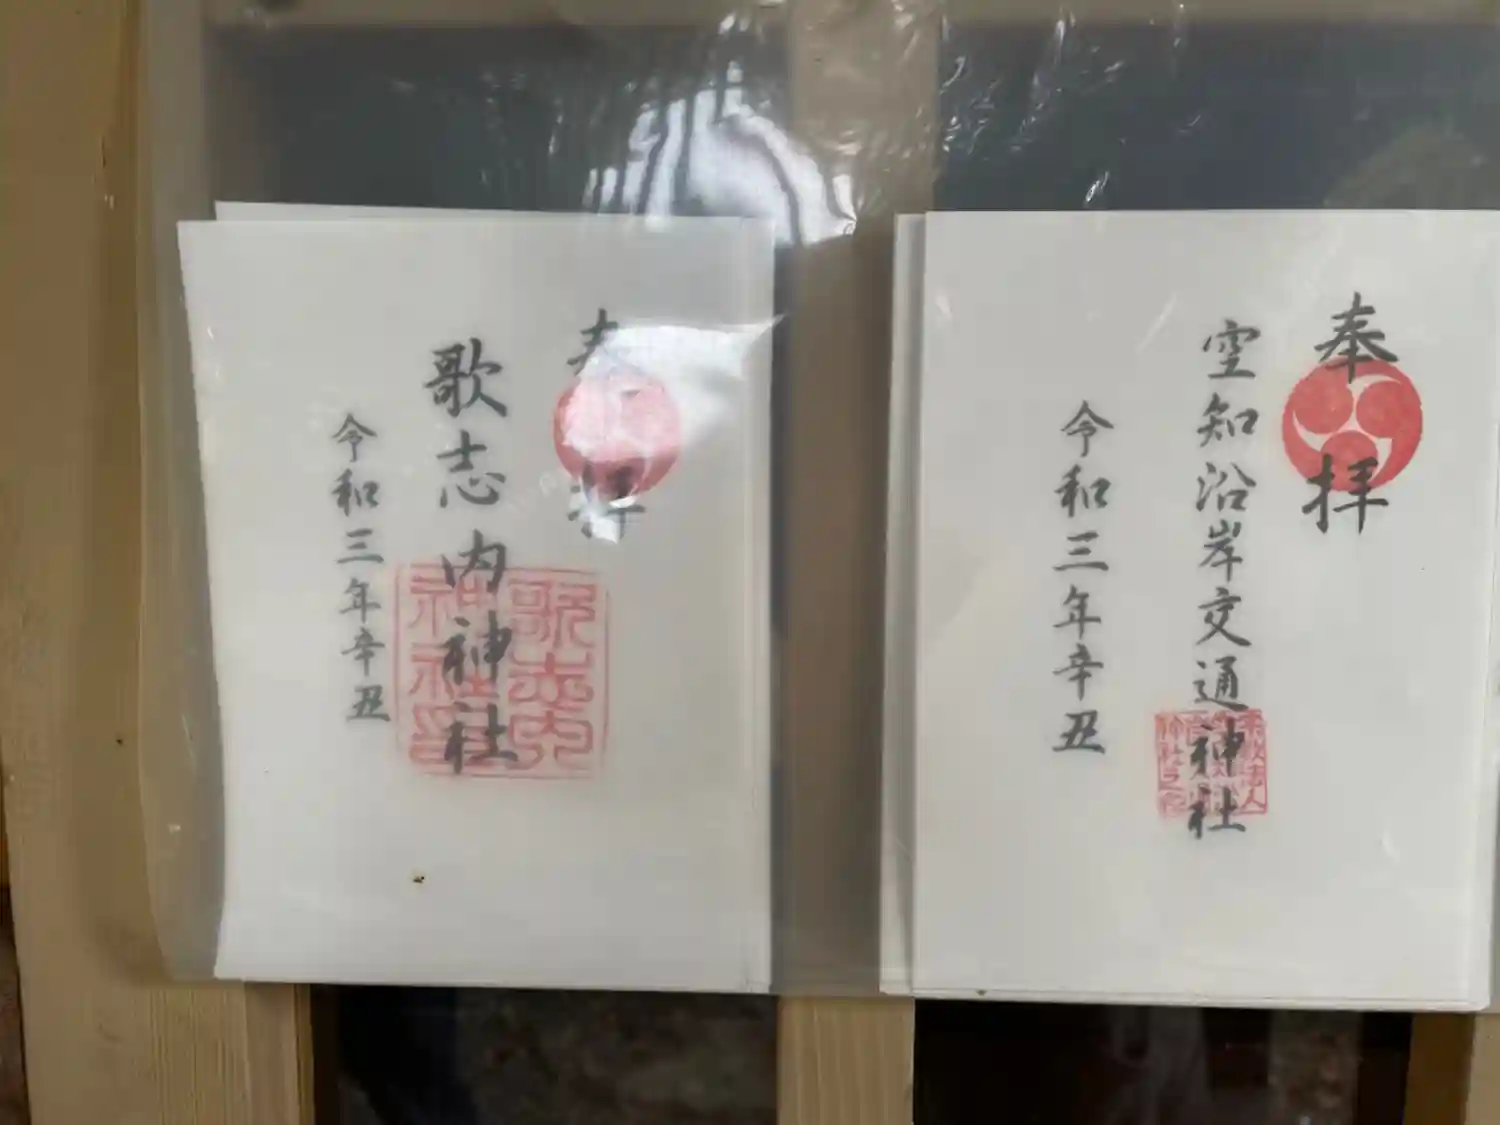 奉拝
歌志内神社
歌志内神社印
令和三年辛丑
奉拝
空知沿岸交通神社
令和三年辛丑